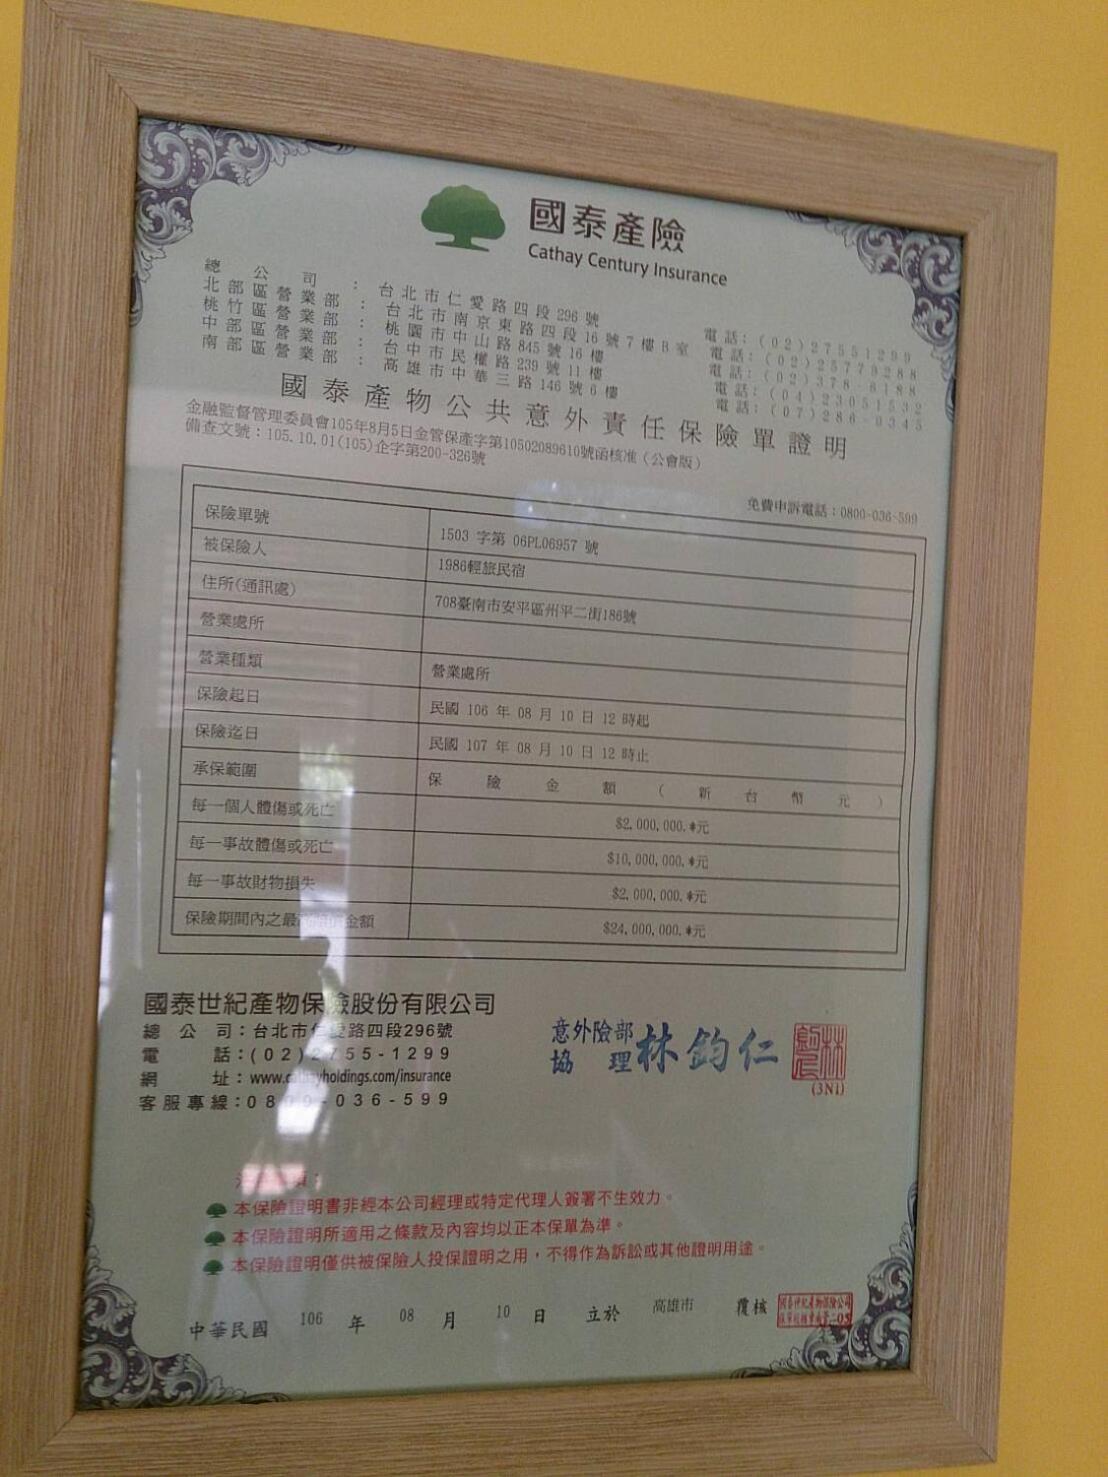 國泰產險
Cathay Century Insurance
總公司：台北市仁愛路四段296號 電話：(02)27551299
北部區營業部：台北市南京東路四段16號7樓B室 電話：(02)25779288
桃竹區營業部：桃園市中山路845號16樓 電話：(02)378-6188
中部區營業部：台中市民權路239號11樓 電話：(04)23051532
南部區營業部：高雄市中華三路146號6樓 電話：(07)286-0345
國泰產物公共意外責任保險單證明
金融監督管理委員會105年8月5日金管保產字第10502089610號函核准（公會版）
備查文號：105.10.01(105)企字第200-326號
免費申訴電話：0800-036-599
保險單號 1503 字第 06PL06957 號
被保險人 1986輕旅民宿
住所(通訊處) 708臺南市安平區州平二街186號
營業處所
營業種類 營業處所
保險起日 民國 106 年 08 月 10 日 12 時起
保險迄日 民國 107 年 08 月 10 日 12 時止
承保範圍 保險金額（新台幣元）
每一個人體傷或死亡 $2,000,000.*元
每一事故體傷或死亡 $10,000,000.*元
每一事故財物損失 $2,000,000.*元
保險期間內之最 金額 $24,000,000.*元
國泰世紀產物保險股份有限公司
總公司：台北市仁愛路四段296號
電話：(02)2755-1299
網址：www.cathayholdings.com/insurance
客服專線：0800-036-599
意外險部
協理 林鈞仁
(3N1)
本保險證明書非經本公司經理或特定代理人簽署不生效力。
本保險證明所適用之條款及內容均以正本保單為準。
本保險證明僅供被保險人投保證明之用，不得作為訴訟或其他證明用途。
中華民國 106 年 08 月 10 日 立於 高雄市 覆核